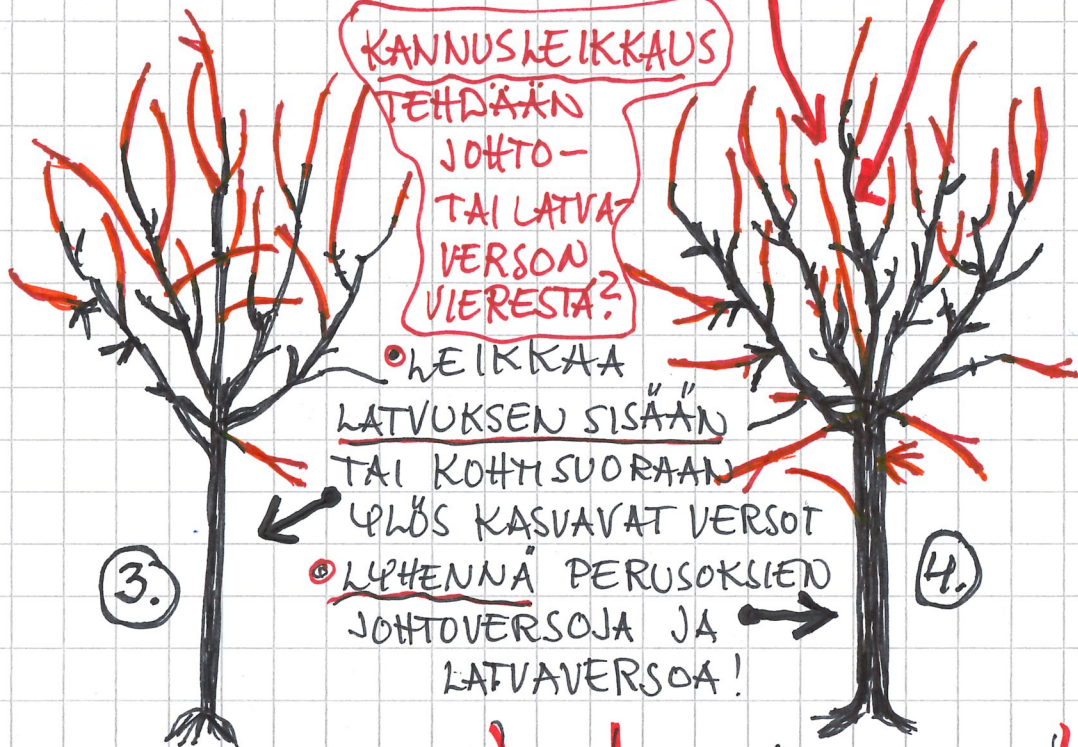 KANNUSLEIKKAUS
TEHDÄÄN
JOHTO-
TAI LATVA-
VERSON
VIERESTÄ?
LEIKKAA
LATVUKSEN SISÄÄN
TAI KOHTISUORAAN
YLÖS KASVAVAT VERSOT
LYHENNÄ PERUSOKSIEN
JOHTOVERSOJA JA
LATVAVERSOA!
3.
4.